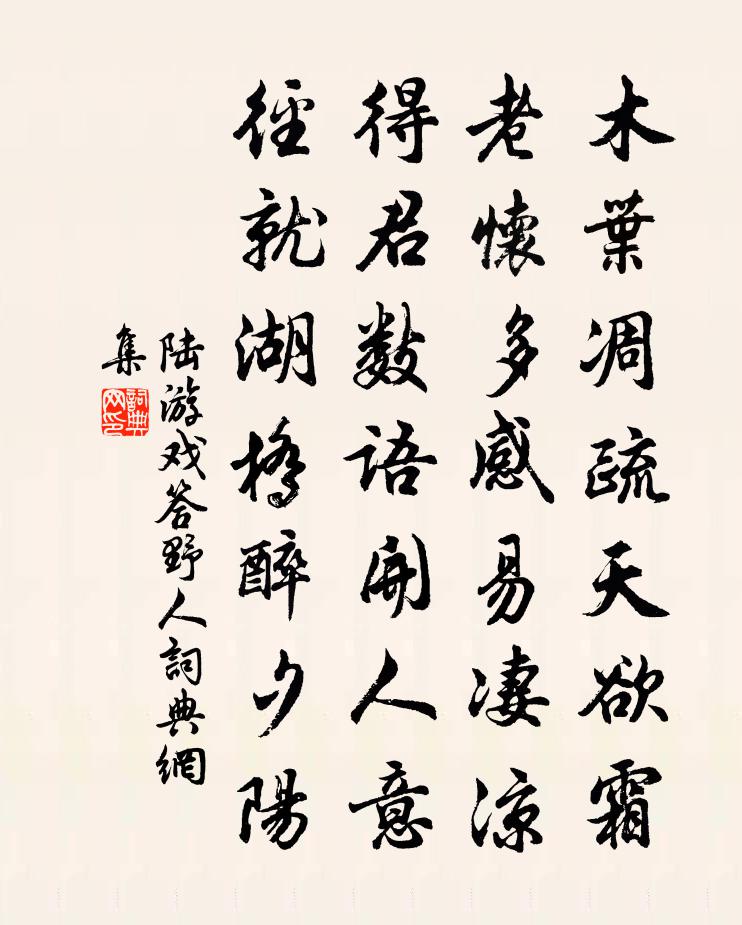 木葉凋疏天欲霜
老懷多感易淒涼
得君数語開人意
徑就湖橋醉夕陽
陆游戏答野人詞典網
集
詞典
网印